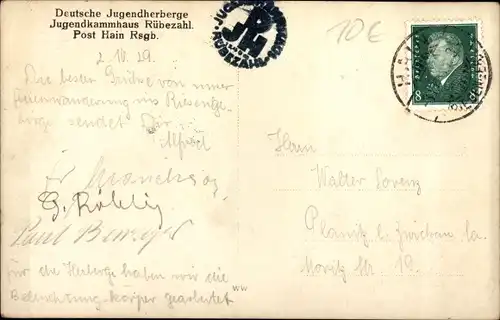 Deutsche Jugendherberge
Jugendkammhaus Rübezahl.
Post Hain Rsgb.
10€
8
2.10.29.
Die besten Grüße von unser
ins Riesenge-
birge sendet Dir
Alfred
G. Röhlig
Paul
für die Herberge haben wir die
Beleuchtungskörper gearbeitet
Herrn
Walter Lorenz
Planitz b. Zwickau Sa.
Moritz Str. 19.
ww